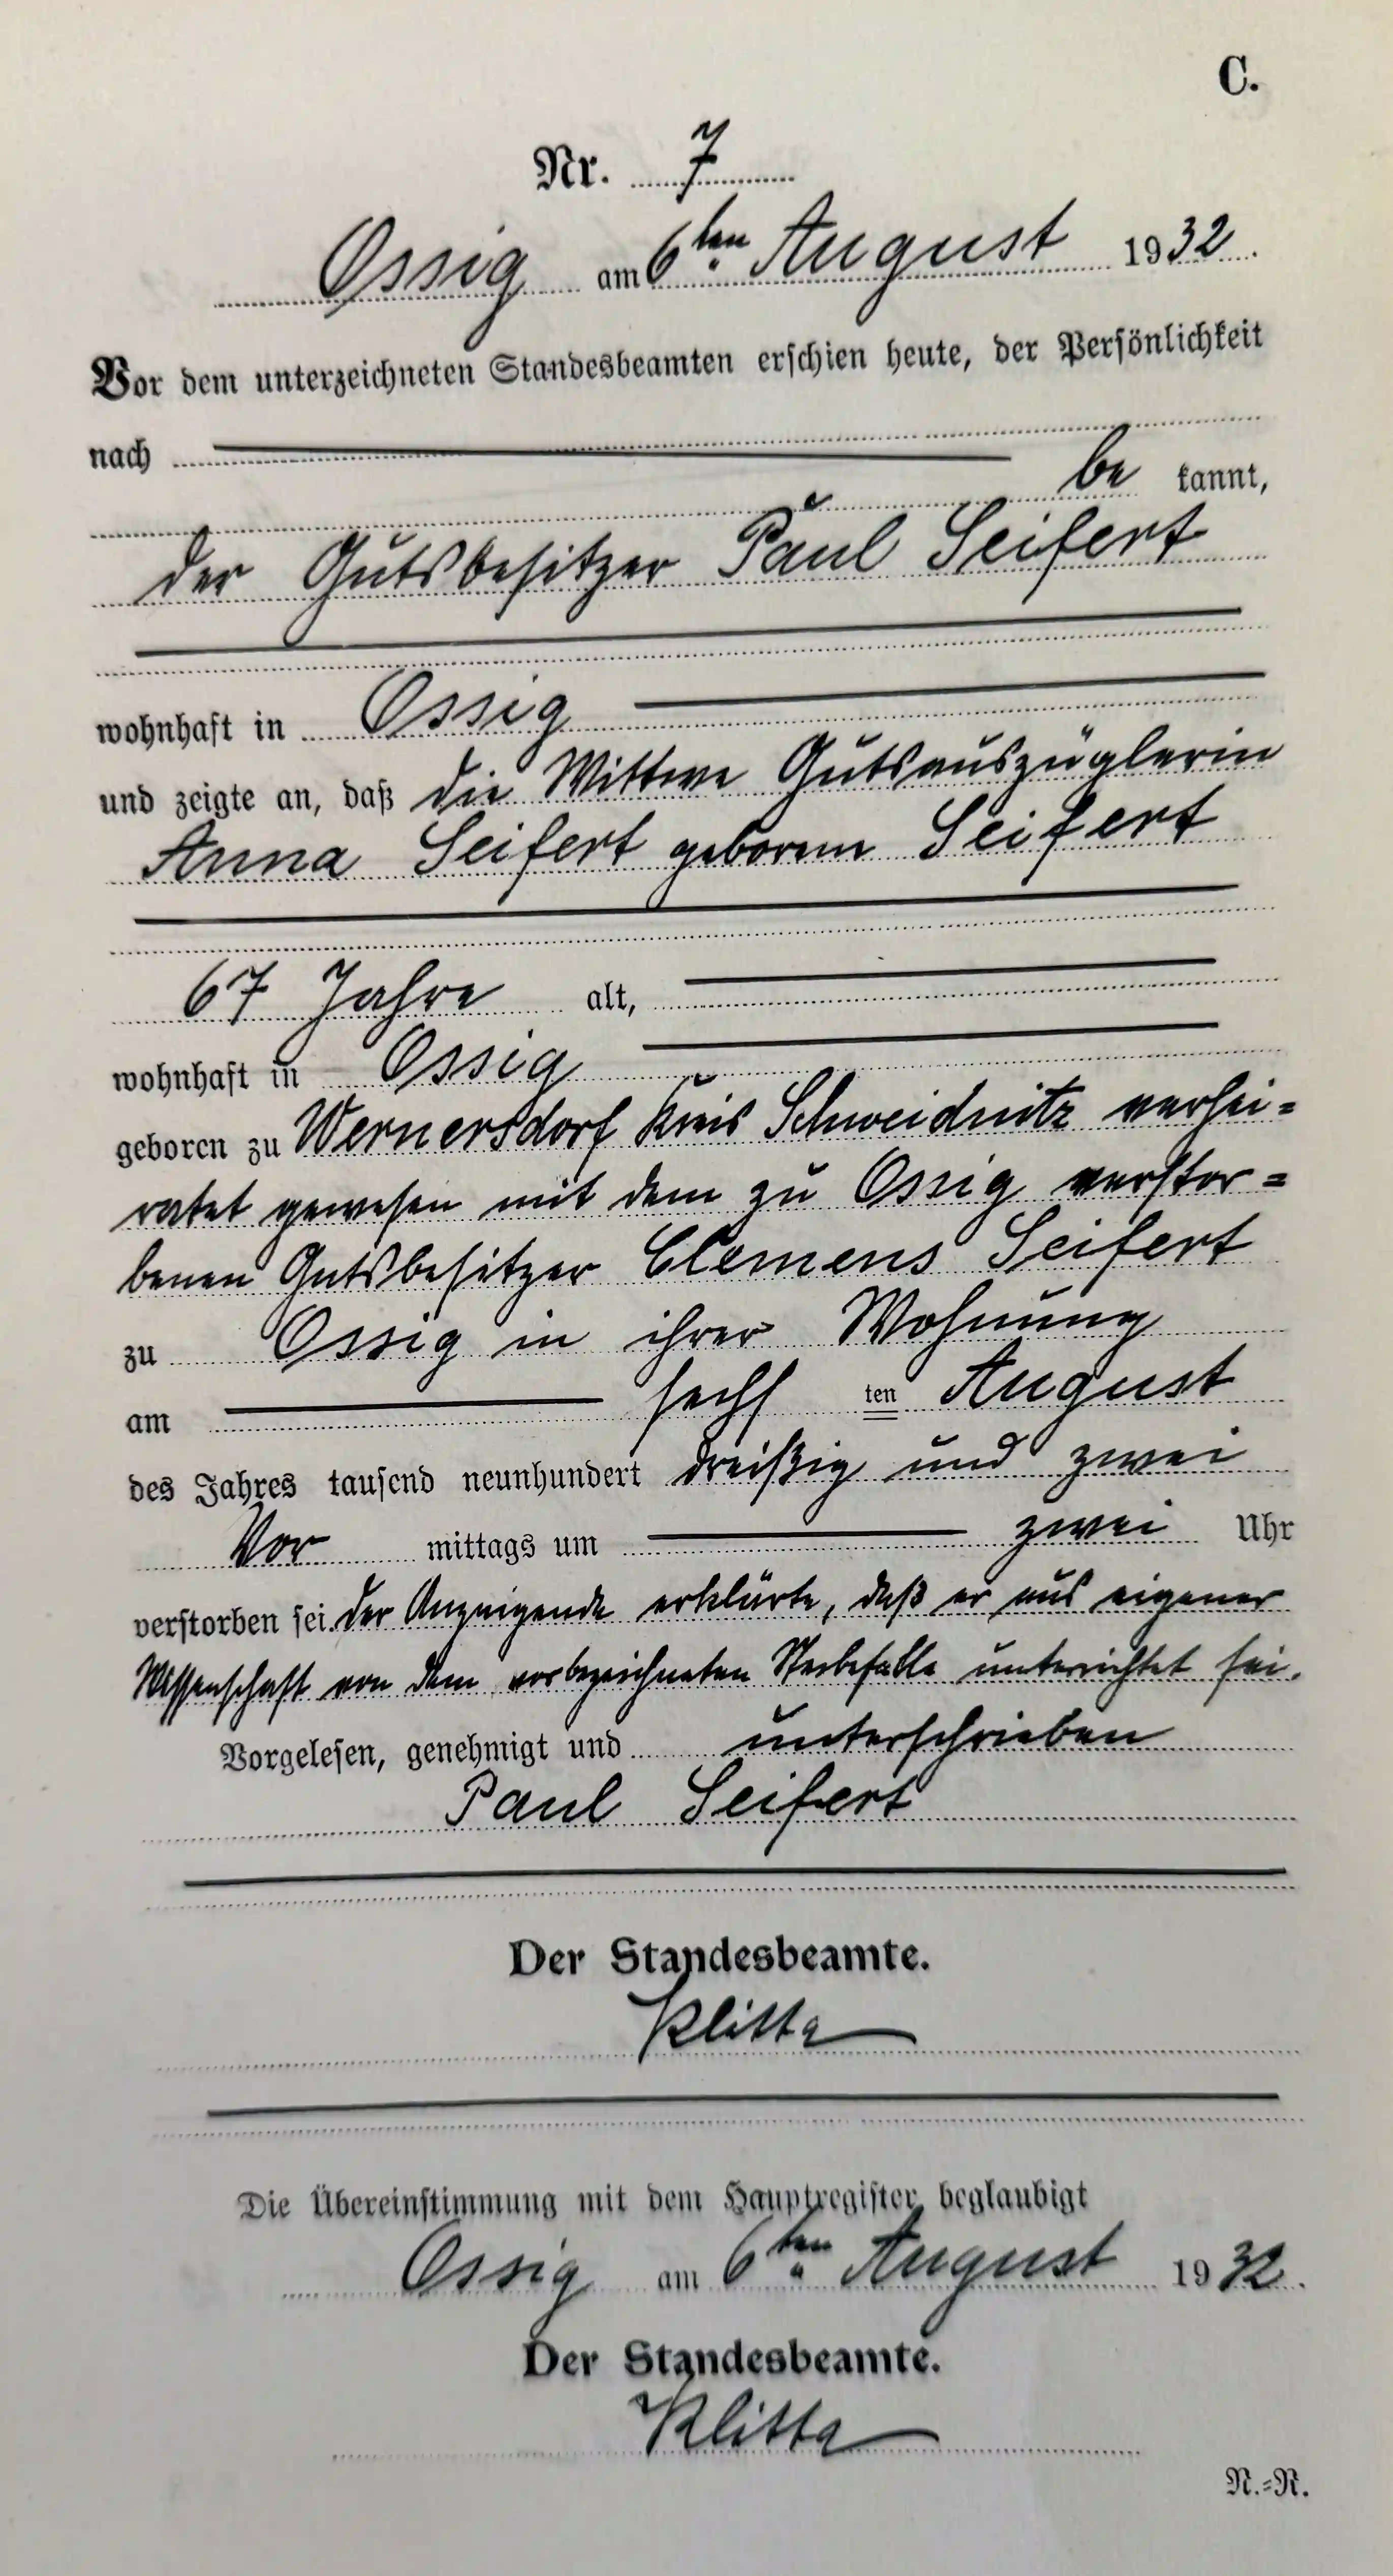 C.
Nr. 7
Ossig am 6ten August 1932.
Vor dem unterzeichneten Standesbeamten erschien heute, der Persönlichkeit
nach
be kannt,
der Gutsbesitzer Paul Seifert
wohnhaft in Ossig
und zeigte an, daß die Wittwe Gutsauszüglerin
Anna Seifert geborene Seifert
67 Jahre alt,
wohnhaft in Ossig
geboren zu Wernersdorf Kreis Schweidnitz verhei=
ratet gewesen mit dem zu Ossig verstor=
benen Gutsbesitzer Clemens Seifert
zu Ossig in ihrer Wohnung
am sechs ten August
des Jahres tausend neunhundert dreißig und zwei
Vor mittags um zwei Uhr
verstorben sei. Der Anzeigende erklärte, daß er aus eigener
Wissenschaft von dem vorbezeichneten Sterbefalle unterrichtet sei.
Vorgelesen, genehmigt und unterschrieben
Paul Seifert
Der Standesbeamte.
Klitta
Die Übereinstimmung mit dem Hauptregister beglaubigt
Ossig am 6ten August 1932.
Der Standesbeamte.
Klitta
N.=R.